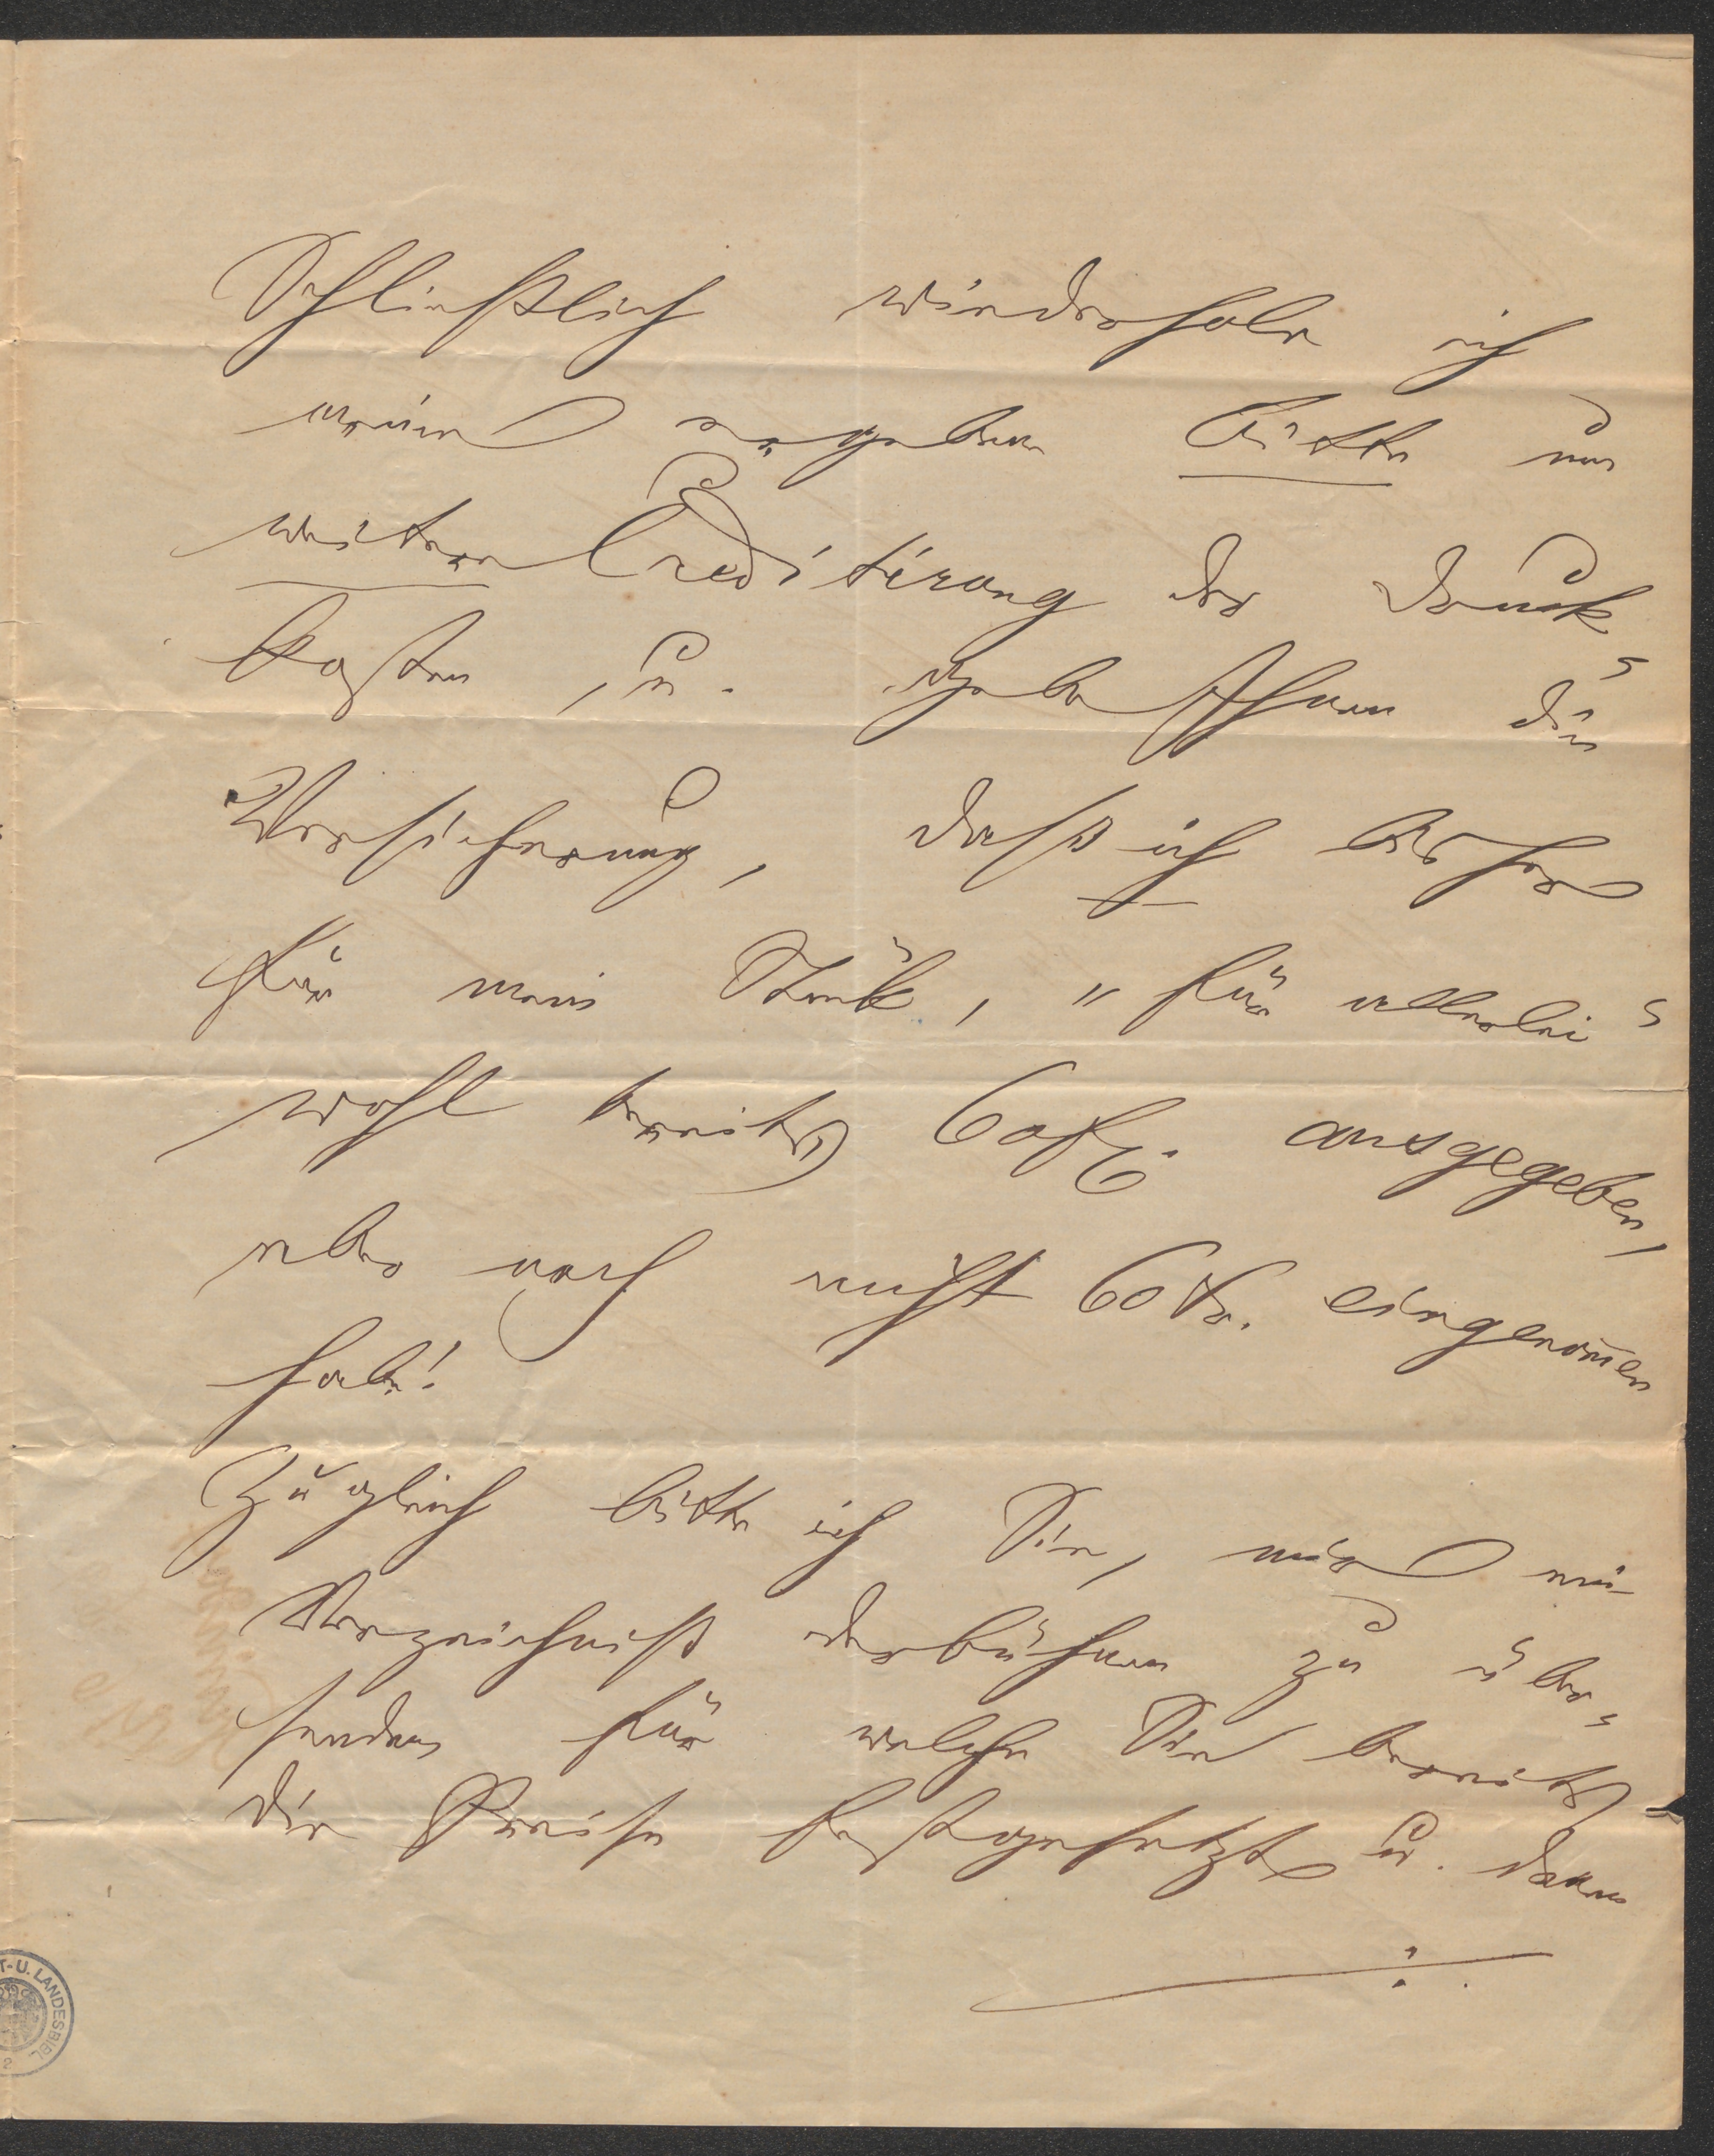 Schließlich wiederhole ich
meine ergebene Bitte um
weitere Creditirung der Druck-
kosten, u. gebe Ihnen die
Versicherung, daß ich bisher
für mein Stück, "für allerlei"
wohl bereits 60 fl. ausgegeben,
aber noch nicht 60 kr. eingenom̄en
habe!
Zugleich bitte ich Sie, mir ein
Verzeichniß der Bühnen zu über-
senden für welche Sie bereits
die Preise festgesetzt u. dann
./.
T-U. LANDESBIBL
2